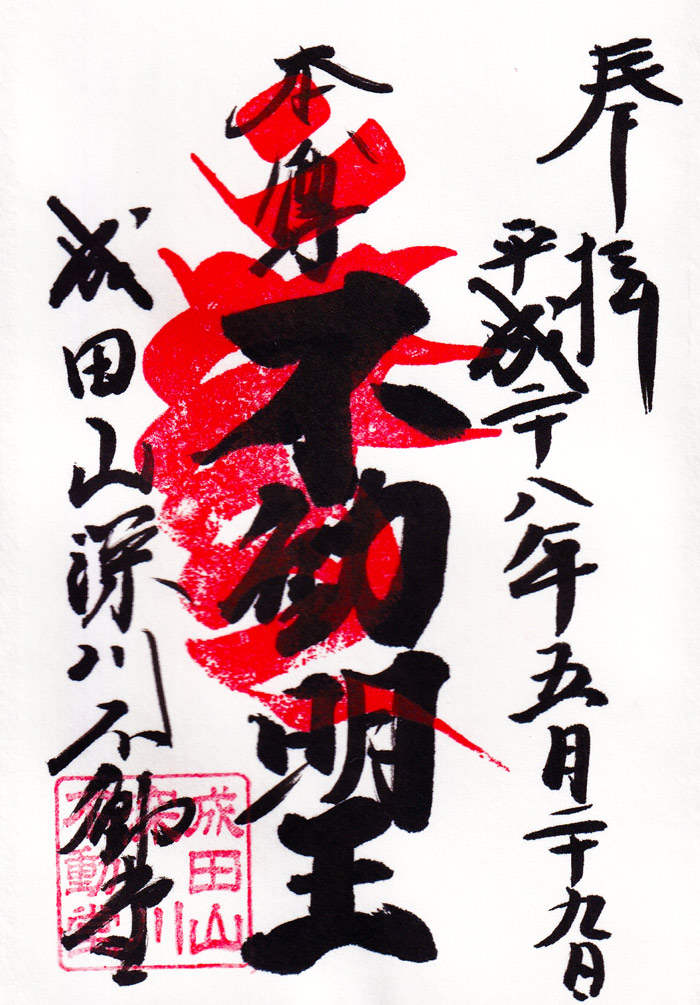 奉拝
平成二十八年五月二十九日
本尊
不動明王
成田山深川不動堂
成田山
深川
不動堂